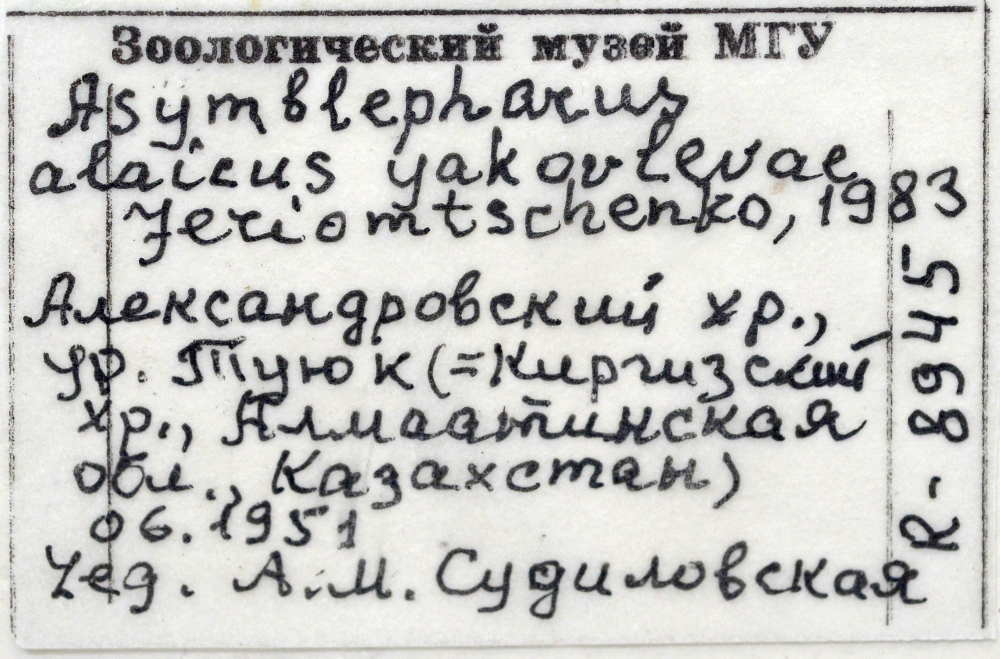 Зоологический музей МГУ
Asymblepharus
alaicus yakovlevae
Jeriomtschenko, 1983
Александровский хр.,
ур. Туюк (=Киргизский
хр., Алмаатинская
обл., Казахстан)
06.1951
Leg. А.М. Судиловская
R-8945